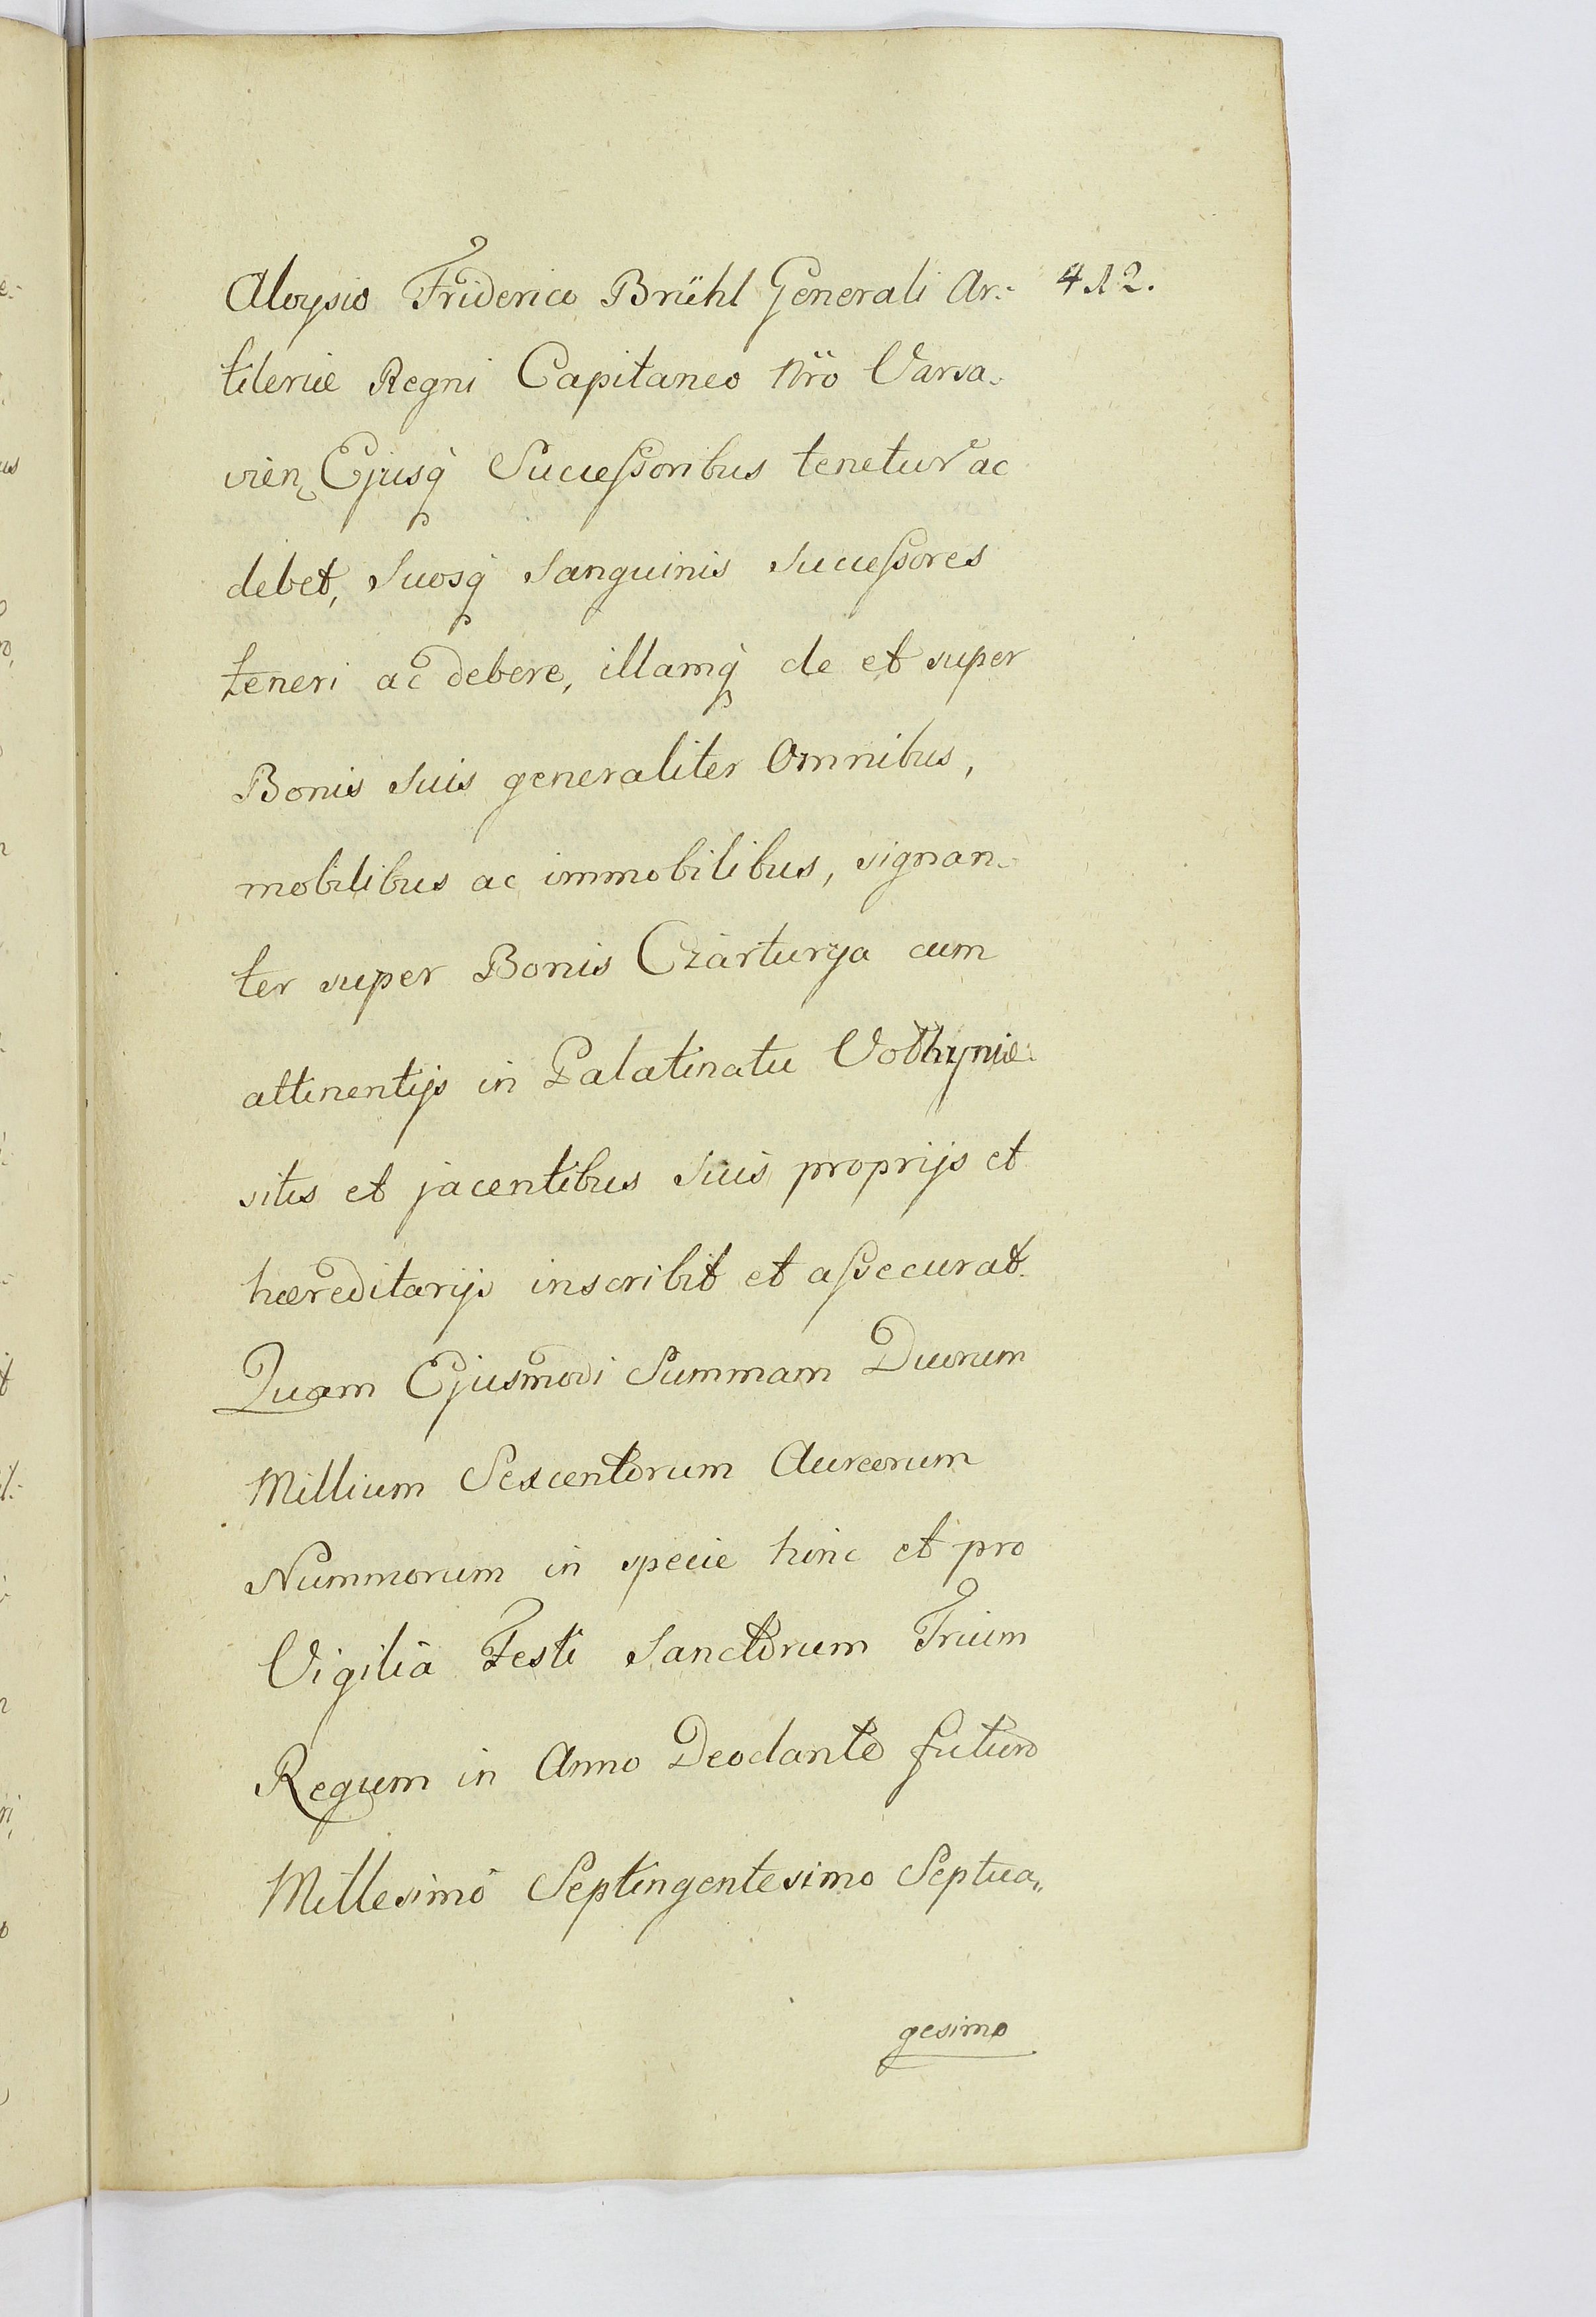 Aloysio Friderico Brühl Generali Ar:
412.
tileriæ Regni Capitaneo Nro Varsa-
vien Ejusq Succeſsoribus tenetur ac
debet, Suosq Sanguinis Succeſsores
teneri ac debere, illamq de et super
Bonis Suis generaliter Omnibus,
mobilibus ac immobilibus, signan-
ter super Bonis Czarturya cum
attinentijs in Palatinatu Volhyniæ
sitis et jacentibus Suis proprijs et
hæreditarijs inscribit et aſsecurat.
Quam Ejusmodi Summam Duorum
Millium Sexcentorum Aureorum
Nummorum in specie hinc et pro
Vigiliâ Festi Sanctorum Trium
Regum in Anno Deodante futuro
Millesimo Septingentesimo Septua„
gesimo